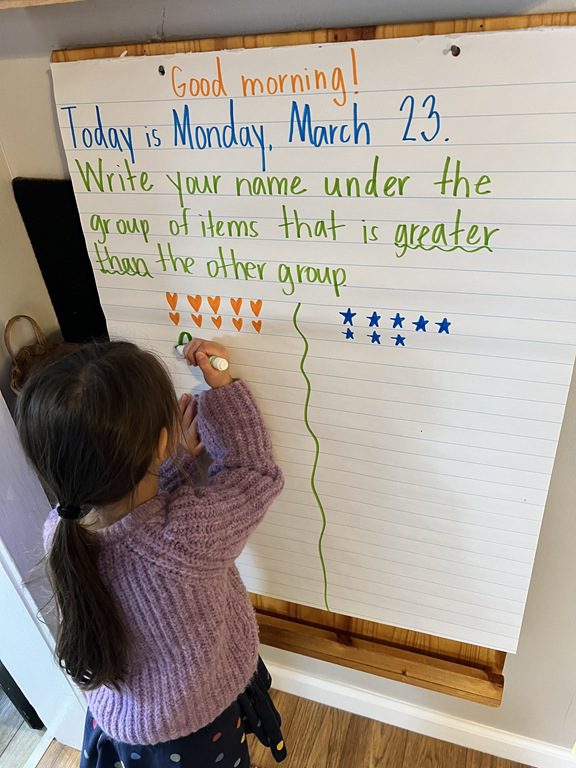 Good morning!
Today is Monday, March 23.
Write your name under the
group of items that is greater
than the other group